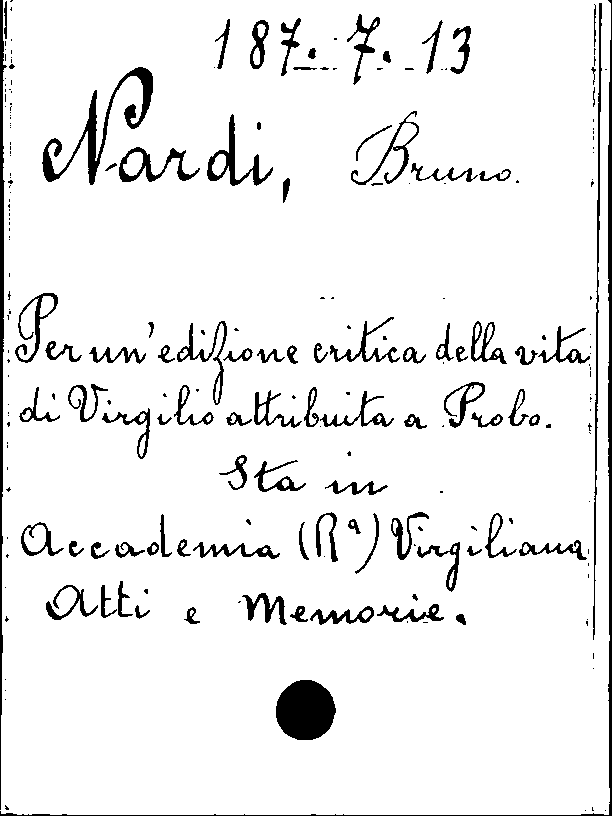 187. 7. 13
Nardi, Bruno.
Per un'edizione critica della vita
di Virgilio attribuita a Probo.
Sta in
Accademia (Rª) Virgiliana
Atti e Memorie.